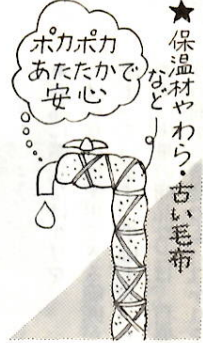 ★保温材やわら・古い毛布
など
ポカポカ
あたたかで
安心